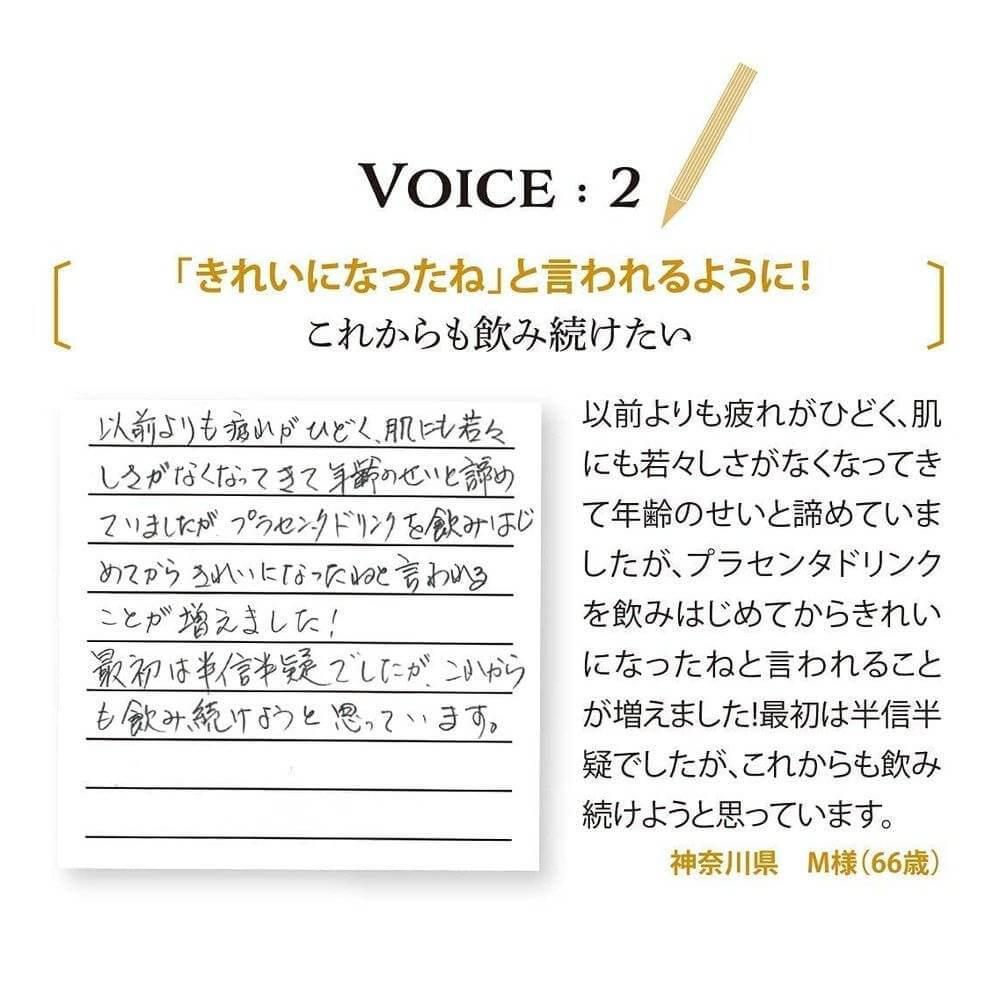 VOICE : 2
「きれいになったね」と言われるように!
これからも飲み続けたい
以前よりも疲れがひどく、肌にも若々
しさがなくなってきて年齢のせいと諦め
ていましたが プラセンタドリンクを飲みはじ
めてから きれいになったねと言われる
ことが増えました!
最初は半信半疑でしたが、これから
も飲み続けようと思っています。
以前よりも疲れがひどく、肌
にも若々しさがなくなってき
て年齢のせいと諦めていま
したが、プラセンタドリンク
を飲みはじめてからきれい
になったねと言われること
が増えました!最初は半信半
疑でしたが、これからも飲み
続けようと思っています。
神奈川県　M様(66歳)